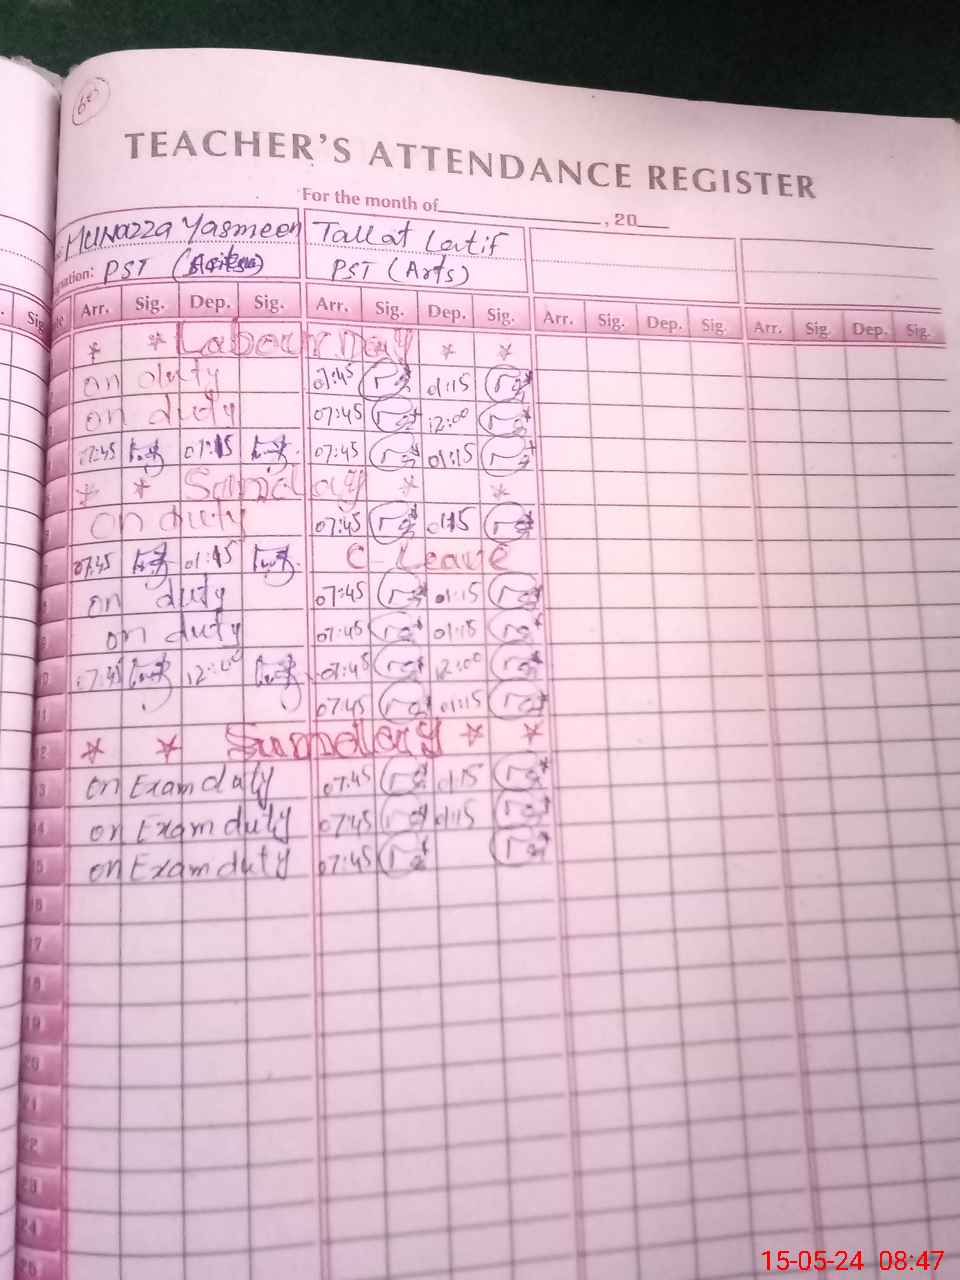 TEACHER'S ATTENDANCE REGISTER
For the month of , 20
Munazza Yasmeen Tallat Latif
nation: PST PST (Arts)
Arr. Sig. Dep. Sig. Arr. Sig. Dep. Sig. Arr. Sig. Dep. Sig. Arr. Sig. Dep. Sig.
* * Labour Day * *
on duty 07:45 01:15
on duty 07:45 12:00
07:45 01:15 07:45 01:15
* * Sunday * *
on duty 07:45 01:15
07:45 01:15 C-Leave
on duty 07:45 01:15
on duty 07:45 01:15
07:45 12:00 07:45 12:00
07:45 01:15
* * Sunday * *
on Exam duty 07:45 01:15
on Exam duty 07:45 01:15
on Exam duty 07:45
17
19
22
23
24
15-05-24 08:47